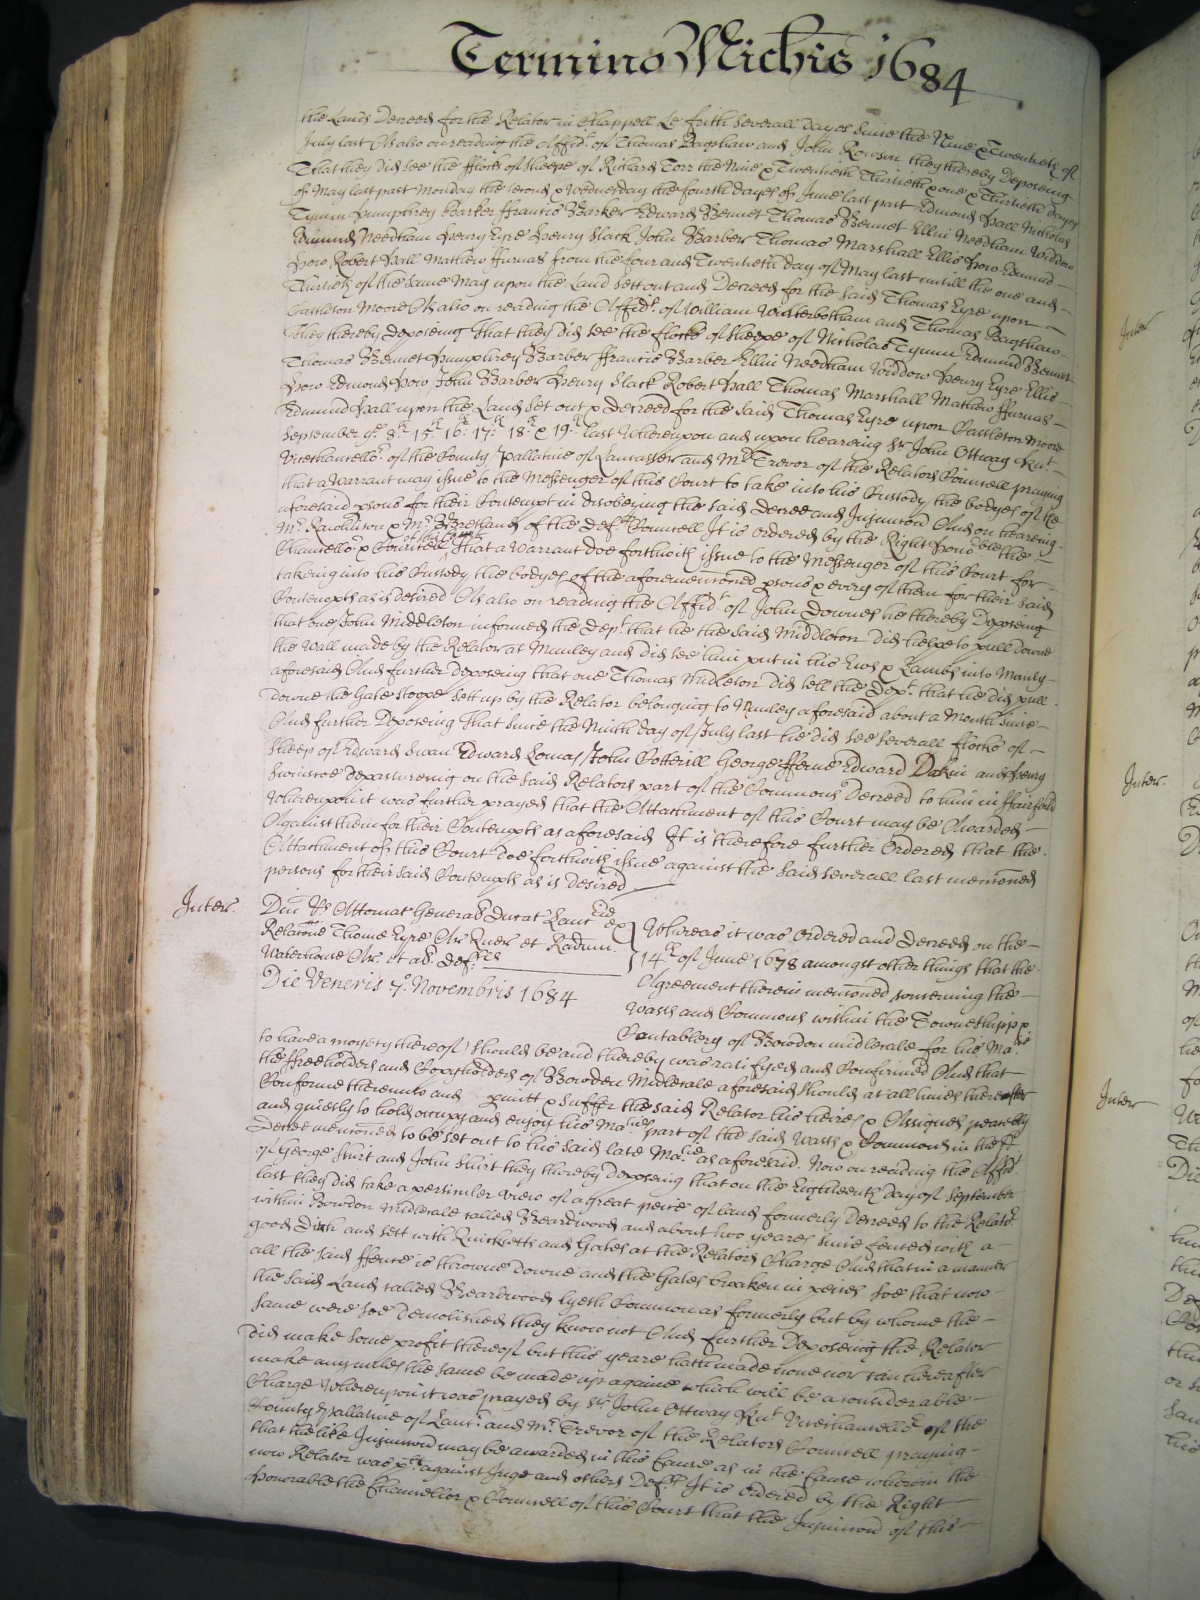 Termino Michis 1684
the Lands Decreed for the Relator in Chappell Le frith severall dayes since the Nine & Twentieth of
July last As also on reading the Affidt. of Thomas Bagshaw and John Rowson they thereby Deposeing
That they did see the fflocks of sheepe of Richard Torr the Nine & Twentieth Thirtieth & one & Thirtieth dayes
of May last past Monday the second & Wednesday the fourth dayes of June last past Edmond Hall Nicholas
Tymm Humphrey Barber ffrancis Barber Edward Bennet Thomas Bennet Ellin Needham Widdow
Edmund Needham Henry Eyre Henry Slack John Barber Thomas Marshall Ellis How Edmund
How Robert Hall Mathew ffurnas from the four and Twentieth day of May last untill the one and
Thirtieth of the same May upon the Land sett out and Decreed for the said Thomas Eyre upon
Castleton Moore As also on reading the Affidt. of William Winterbotham and Thomas Bagshaw
they thereby deposeing That they did see the flocks of sheepe of Nicholas Tymm Edmund Bennet
Thomas Bennet Humphrey Barber ffrancis Barber Ellin Needham Widdow Henry Eyre Ellis
How Edmond How John Barber Henry Slack Robert Hall Thomas Marshall Mathew ffurnas
Edmund Hall upon the Land set out & Decreed for the said Thomas Eyre upon Castleton Moore
September ye. 8th. 15th. 16th. 17th. 18th. & 19th. last Whereupon and upon heareing Sr. John Ottway Knt.
Vicechancellor. of the County Pallatine of Lancaster and Mr. Trevor of the Relators Councell praying
that a Warrant may issue to the Messenger of this Court to take into his Custody the bodyes of the
aforesaid psons for their Contempt in disobeying the said Decree and Injuncion And on heareing
Mr. Rawlinson & Mr. Bresland of the Defts. Councell It is ordered by the Right Honoble the
Chancellor. & Councell of this Court That a Warrant doe forthwith issue to the Messenger of this Court for
takeing into his Custody the bodyes of the aforemencioned psons & every of them for their said
Contempts as is desired As also on reading the Affidt. of John Downes he thereby Deposeing
that one John Middleton informed the Dept. that he the said Middleton did helpe to pull downe
the Wall made by the Relator at Mauley and did see him put in his Ews & Lambs into Mauly
aforesaid And further deposeing that one Thomas Midleton did tell the Dept. that he did pull
downe the Gate stoope sett up by the Relator belonging to Mauley aforesaid about a Month since
And further Deposeing That since the Ninth day of July last he did see severall flocks of
sheep of Edward Swan Edward Lomas John Cotterill George fferne Edward Dakin and Henry
Swinscoe depastureing on the said Relators part of the Commons Decreed to him in ffairfeild
Whereupon it was further prayed that the Attachment of this Court may be Awarded
Against them for their Contempts as aforesaid It is therefore further Ordered that the
Attachment of this Court doe forthwith issue against the said severall last mencioned
persons for their said Contempts as is desired
Inter. Dm Rs Attornat Generald Ducat Lanc ex
Relacone Thome Eyre Ar Quer et Radum
Waterhouse Ar et al. Defts
Die Veneris 7o. Novembris 1684
Whereas it was Ordered and Decreed on the
14th of June 1678 amongst other things that the
Agreement therein mencioned concerning the
Wasts and Commons within the Towneshipp &
Constablery of Bowdon midlecale for his Matie
to have a moyety thereof) should be and thereby was ratifyed and Confirmed And that
the ffreeholders and Copyholders of Bowden Midlecale aforesaid should at all times thereafter
Conforme thereunto and pmitt & suffer the said Relator his heires & Assignes peaceably
and quietly to hold occupy and enjoy his Maties part of the said Wasts & Commons in the sd.
Decree mencioned to be set out to his said late Matie as aforesaid. Now on reading the Affidt.
of George Shirt and John Shirt they thereby Deposeing that on the Eighteenth day of September
last they did take a perticuler view of a great peice of land formerly Decreed to the Relator
within Bowdon Midlecale called Beardwood and about two yeares since fenced with a
good Ditch and sett with Quicksetts and Gates at the Relators Charge And that in a manner
all the said ffence is throwne downe and the Gates broaken in peices soe that now
the said Land called Beardwood lyeth Common as formerly but by whome the
same were soe Demolished they know not And further Deposeing the Relator
did make some profit thereof but this yeare hath made none nor can hereafter
make any unles the same be made up againe which will be a considerable
Charge Whereupon it was prayed by Sr. John Ottway Knt. Vicechancellor of the
County Pallatine of Lanc. and Mr. Trevor of the Relators Councell praying
that the like Injuncion may be awarded in this Cause as in the Cause wherein the
now Relator was plt against Inge and others Defts. It is Ordered by the Right
Honorable the Chancellor & Councell of this Court that the Injuncion of this
Inter
Inter.
Inter